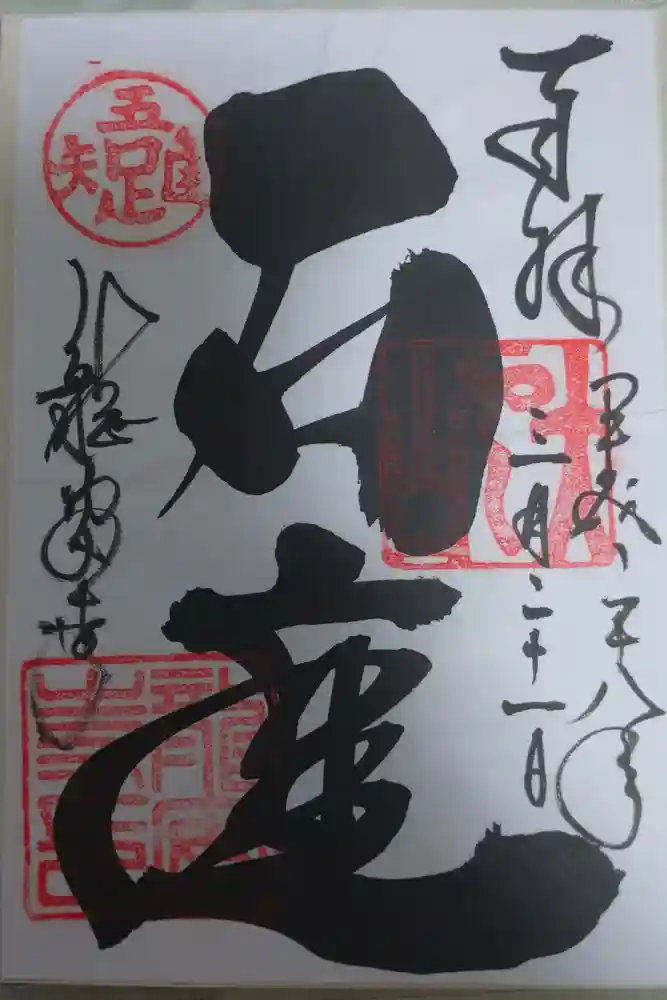 奉拝
平成二十八年
三月二十一日
石庭
吾唯足知
龍安寺